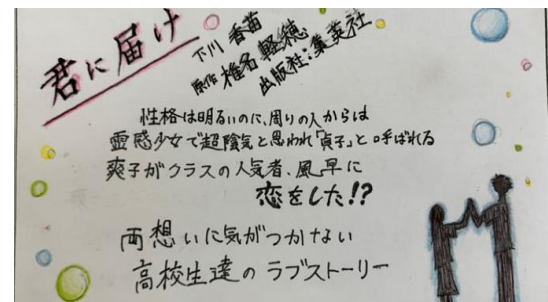 君に届け
下川 香苗
原作 椎名 軽穂
出版社：集英社
性格は明るいのに、周りの人からは
霊感少女で超陰気と思われ「貞子」と呼ばれる
爽子がクラスの人気者、風早に
恋をした!?
両想いに気がつかない
高校生達のラブストーリー